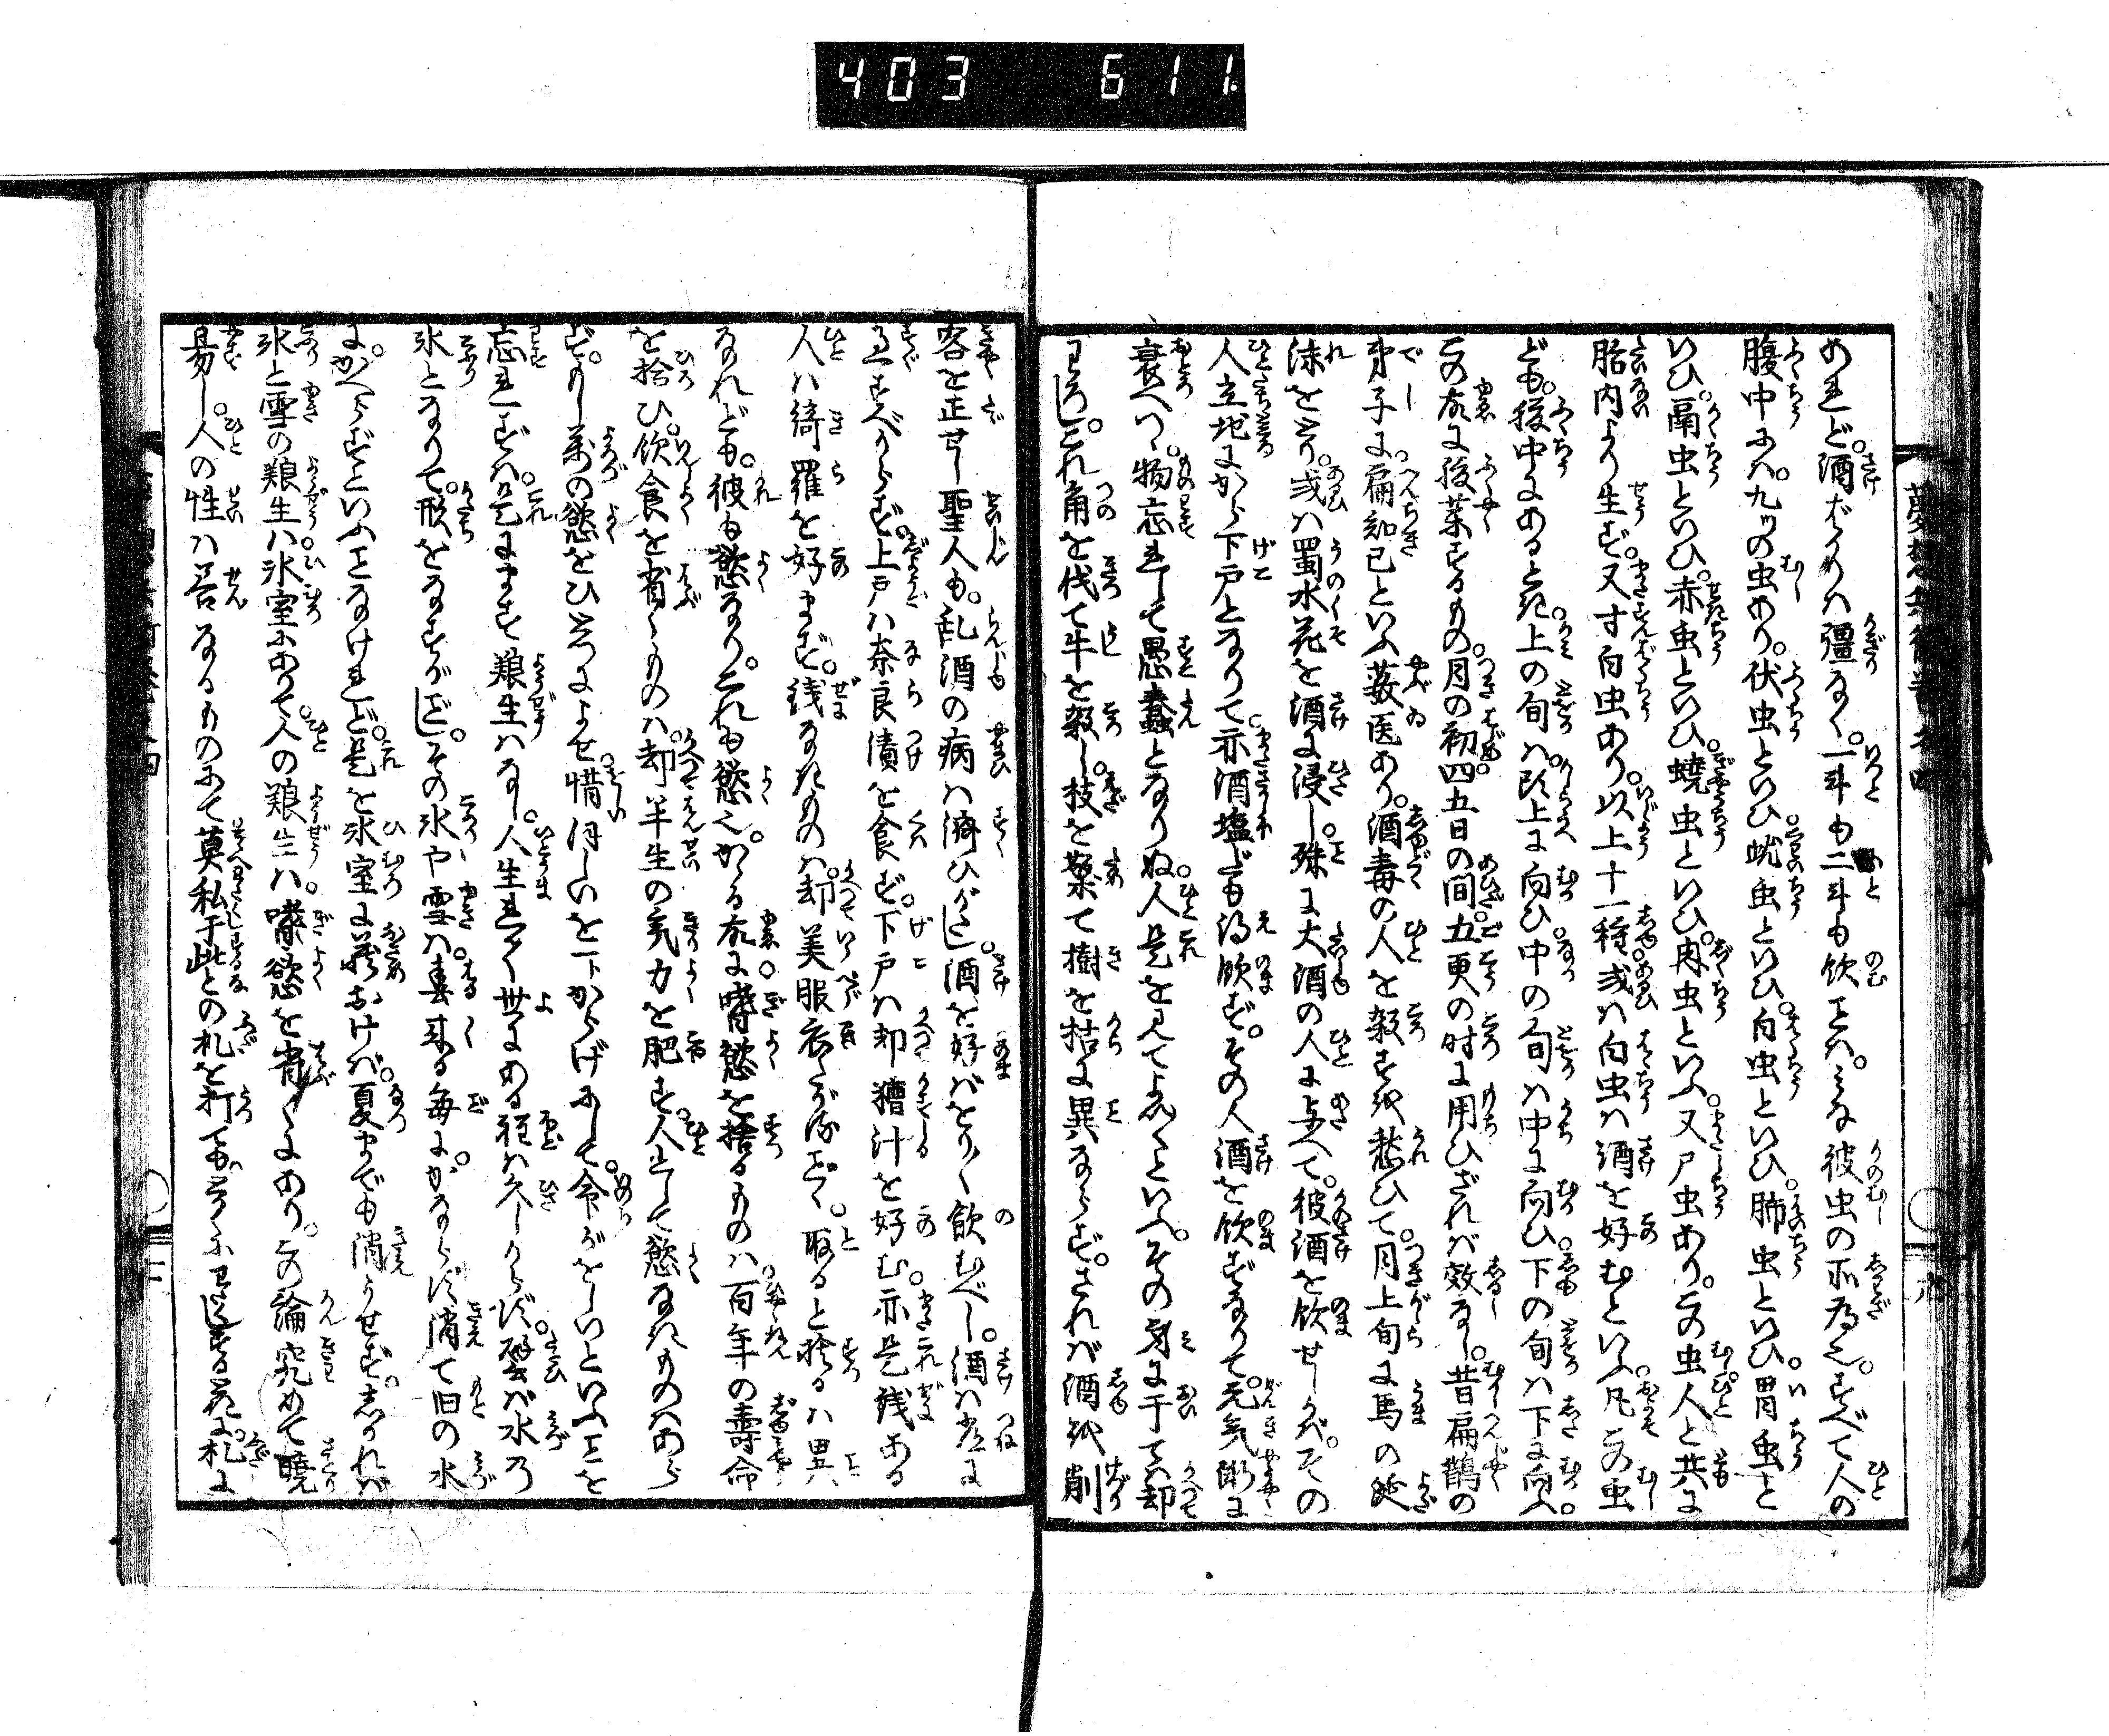 403 611
あれど。酒ばかりは彊なく。一斗も二斗も飲ことは。みな彼虫の所為也。すべて人の
腹中には。九ツの虫あり。伏虫といひ蚘虫といひ。白虫といひ。肺虫といひ。胃虫と
いひ。鬲虫といひ。赤虫といひ。蟯虫といひ。肉虫といふ。又尸虫あり。この虫人と共に
胎内より生ず。又寸白虫あり。以上十一種或は白虫は酒を好むといふ。凡この虫
ども。腹中にあるとき。上の旬は。頭上に向ひ中の旬は中に向ひ。下の旬は下に向ふ。
この故に服薬するもの。月の初四五日の間。五更の時に用ひざれば效なし。昔扁鵲の
弟子に。扁知己といふ藪医あり。酒毒の人を殺すを愁ひて。月上旬に馬の涎
沫をとり。或は蜀水花を酒に浸し。殊に大酒の人に与へて。彼酒を飲せしかば。その
人立地にから下戸となりて。亦酒塩だも得飲ず。その人酒を飲ずなりて。元気漸に
衰へ。物忘れして愚蠢となりぬ。人是を見てよしといへ。その身に于ては却
わろし。これ角を伐て牛を殺し。枝を繁て樹を枯に異ならず。されば酒を削
客を正せし聖人も。乱酒の病は済ひがたし。酒を好ばとりて飲むべし。酒は常に
過すべからず。上戸は奈良漬を食ず。下戸は却糟汁を好む。亦是銭ある
人は綺羅を好まず。銭なきものは。却美服衣たがるごとく。取ると捨るは異
なれども。彼も慾なり。これも慾也。かゝる故に嗜慾を捨るものは。百年の寿命
を拾ひ。飲食を省くものは。却半生の気力を肥す。人として慾なきものはあら
ず。もし万の慾をひとつによせ。惜ほしいを一トからげにして。命がをしいといふことを
忘れずは。是にます養生はなし。人生れて世にある程は久しからず。譬ば水の
氷となりて。形をなすがごとし。その氷や雪は。春来る毎に。かならず消て旧の水
に。かへらずといふことなけれど。是を氷室に蔵おけば。夏までも消うせず。しかれば
氷と雪の養生は氷室にありて。人の養生は。嗜慾を省くにあり。この論究めて暁
易し。人の性は善なるものにて莫私于此との札を打てもそこにわろくする故に。札に